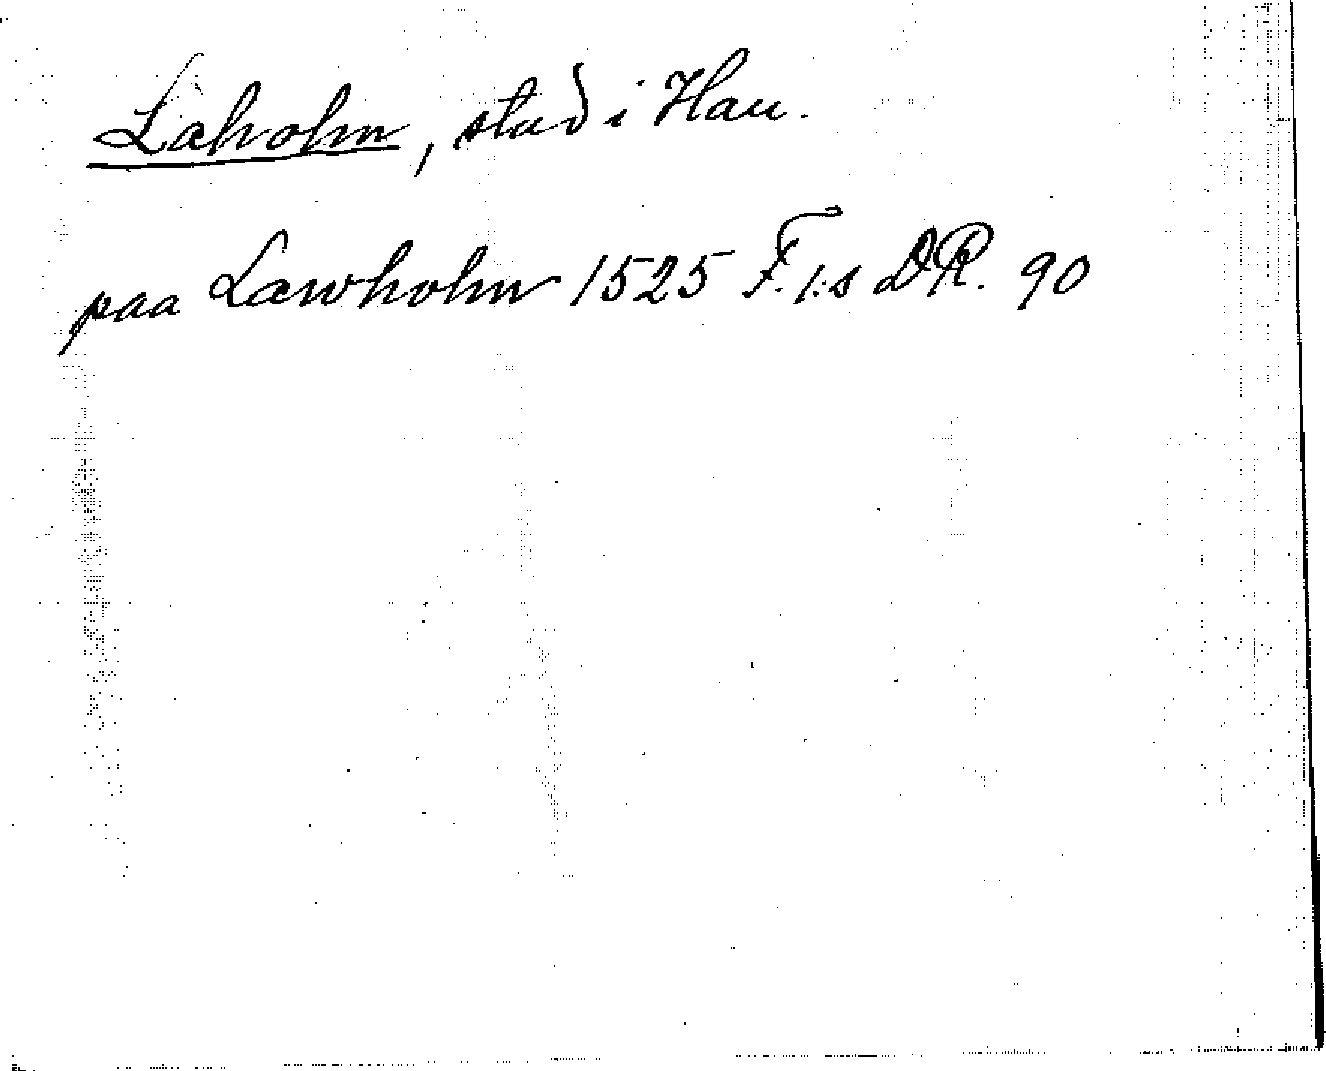 Laholm, stad i Hall.
paa Lawholm 1525 F. I:s DR. 90